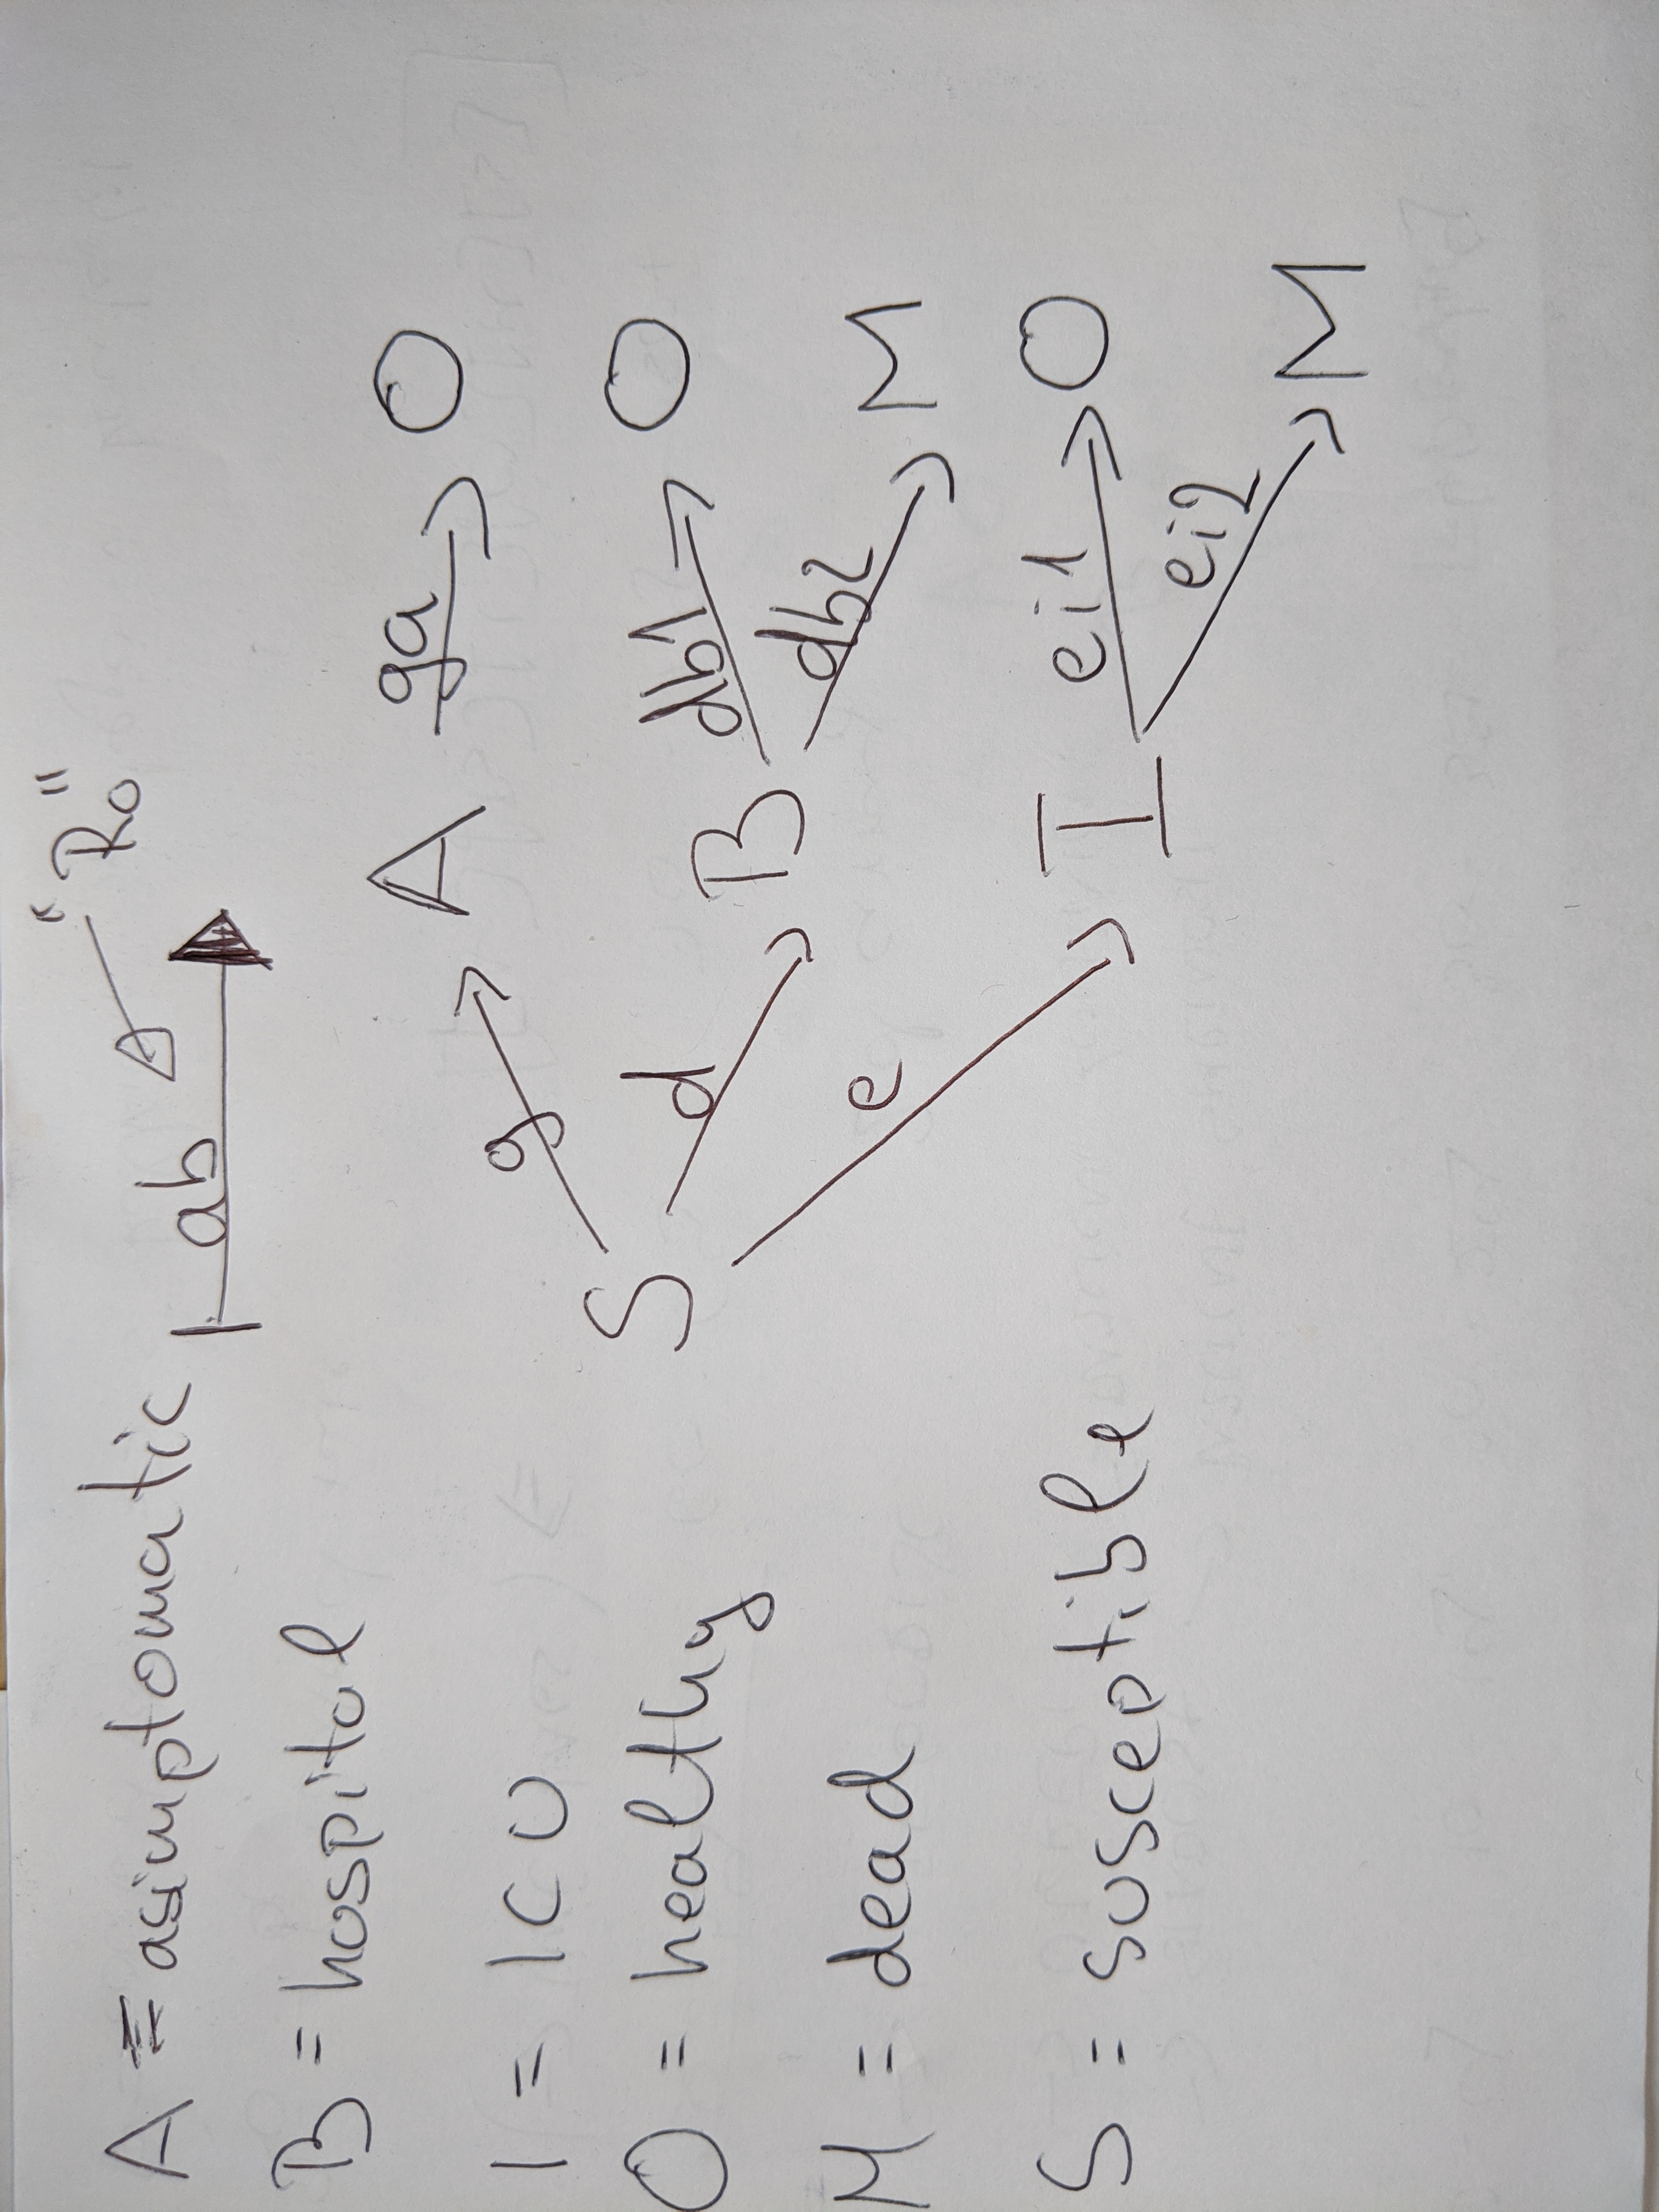 A = asimptomatic
B = hospital
I = ICU
O = healthy
M = dead
S = susceptible
ab
"R0"
S
g
d
e
A
B
I
ga
db1
db2
ei1
ei2
O
O
M
O
M